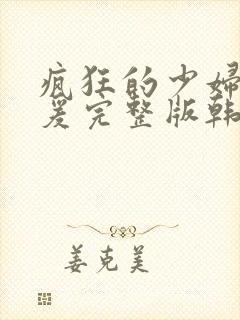 疯狂的少妇
爰完整版韩
姜克美